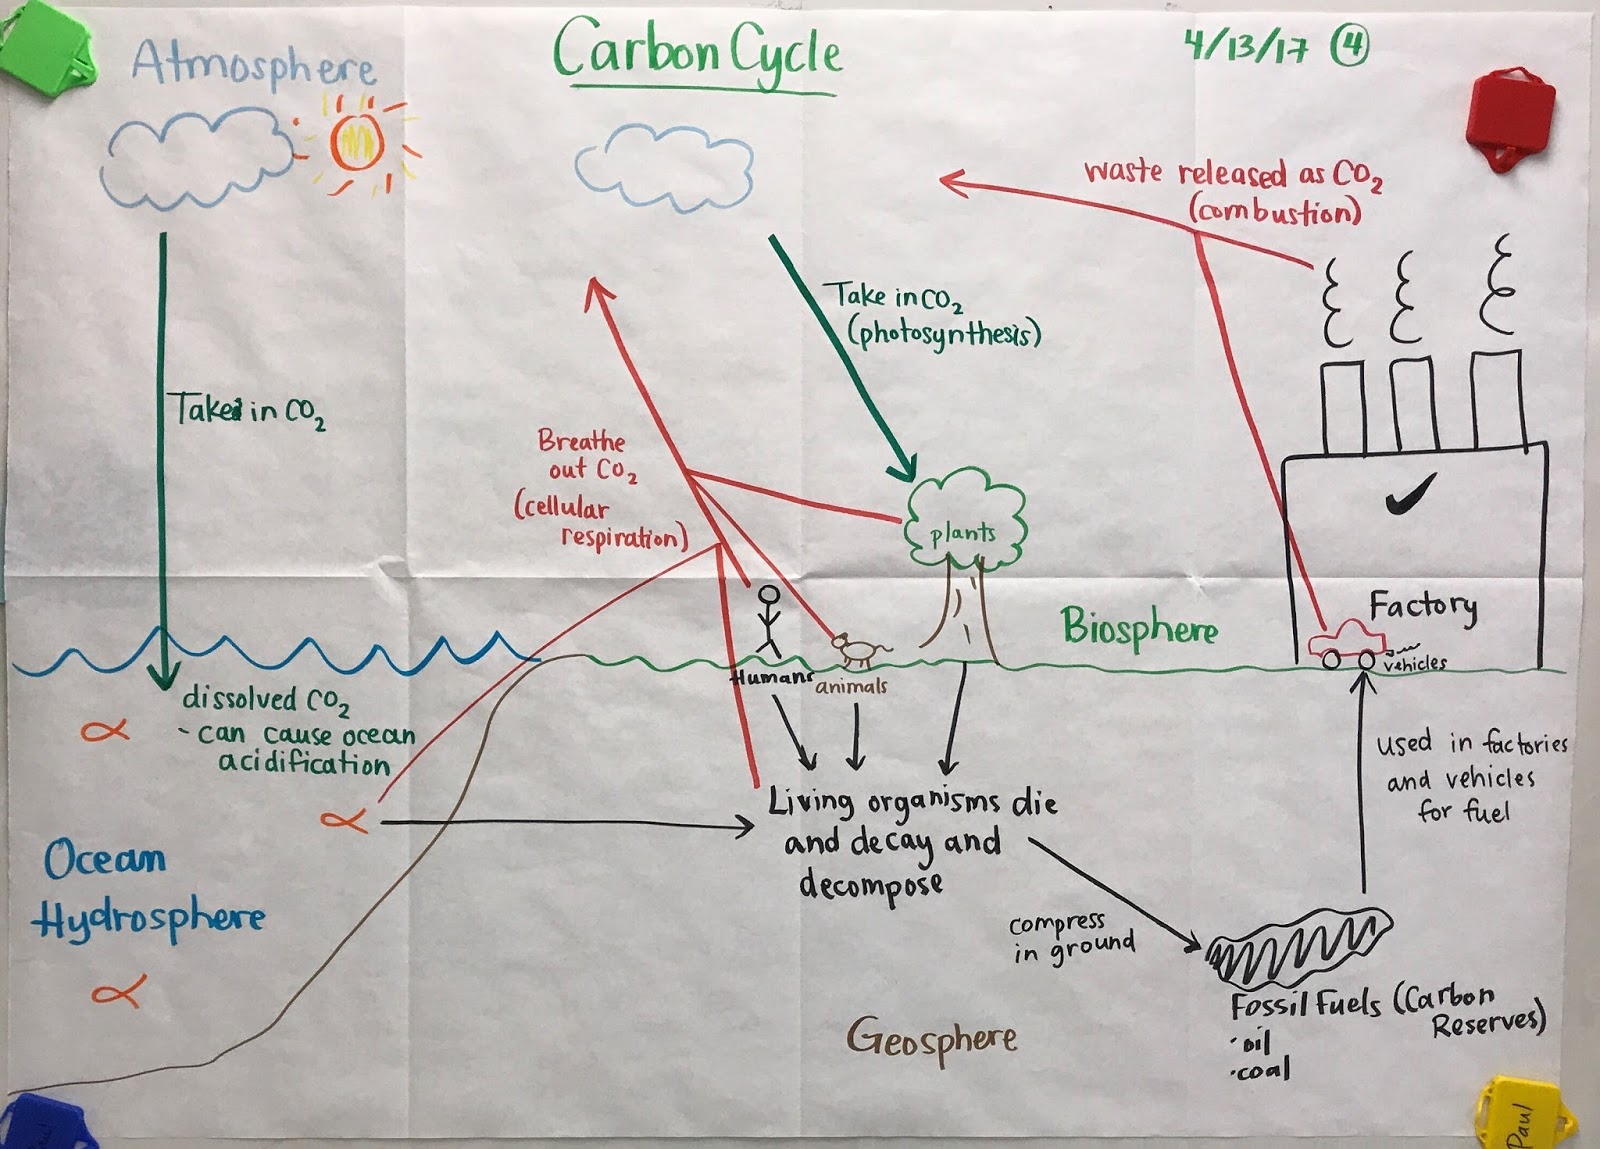 Atmosphere
Carbon Cycle
4/13/17 4
waste released as CO₂
(combustion)
Take in CO₂
(photosynthesis)
Take in CO₂
Breathe
out CO₂
(cellular
respiration)
plants
Biosphere
Factory
vehicles
Humans
animals
dissolved CO₂
- can cause ocean
acidification
used in factories
and vehicles
for fuel
Living organisms die
and decay and
decompose
Ocean
Hydrosphere
compress
in ground
Fossil Fuels (Carbon
Reserves)
· oil
· coal
Geosphere
Paul